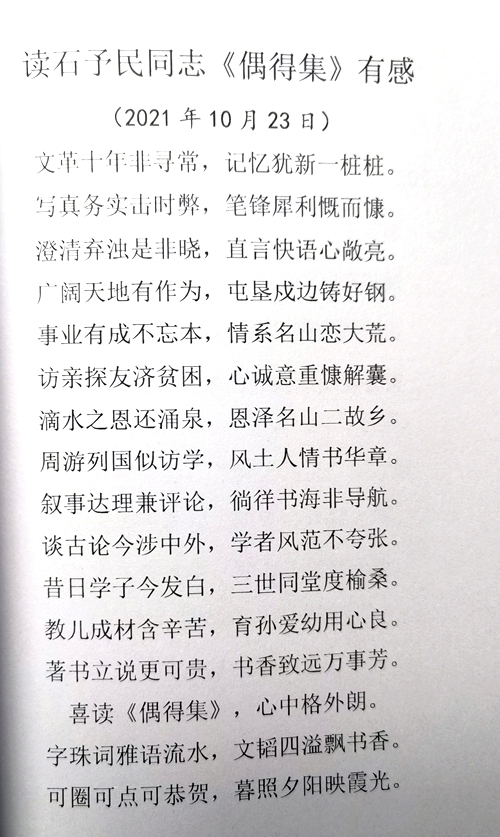 读石予民同志《偶得集》有感
（2021 年 10 月 23 日）
文革十年非寻常，记忆犹新一桩桩。
写真务实击时弊，笔锋犀利慨而慷。
澄清弃浊是非晓，直言快语心敞亮。
广阔天地有作为，屯垦戍边铸好钢。
事业有成不忘本，情系名山恋大荒。
访亲探友济贫困，心诚意重慷解囊。
滴水之恩还涌泉，恩泽名山二故乡。
周游列国似访学，风土人情书华章。
叙事达理兼评论，徜徉书海非导航。
谈古论今涉中外，学者风范不夸张。
昔日学子今发白，三世同堂度榆桑。
教儿成材含辛苦，育孙爱幼用心良。
著书立说更可贵，书香致远万事芳。
喜读《偶得集》，心中格外朗。
字珠词雅语流水，文韬四溢飘书香。
可圈可点可恭贺，暮照夕阳映霞光。